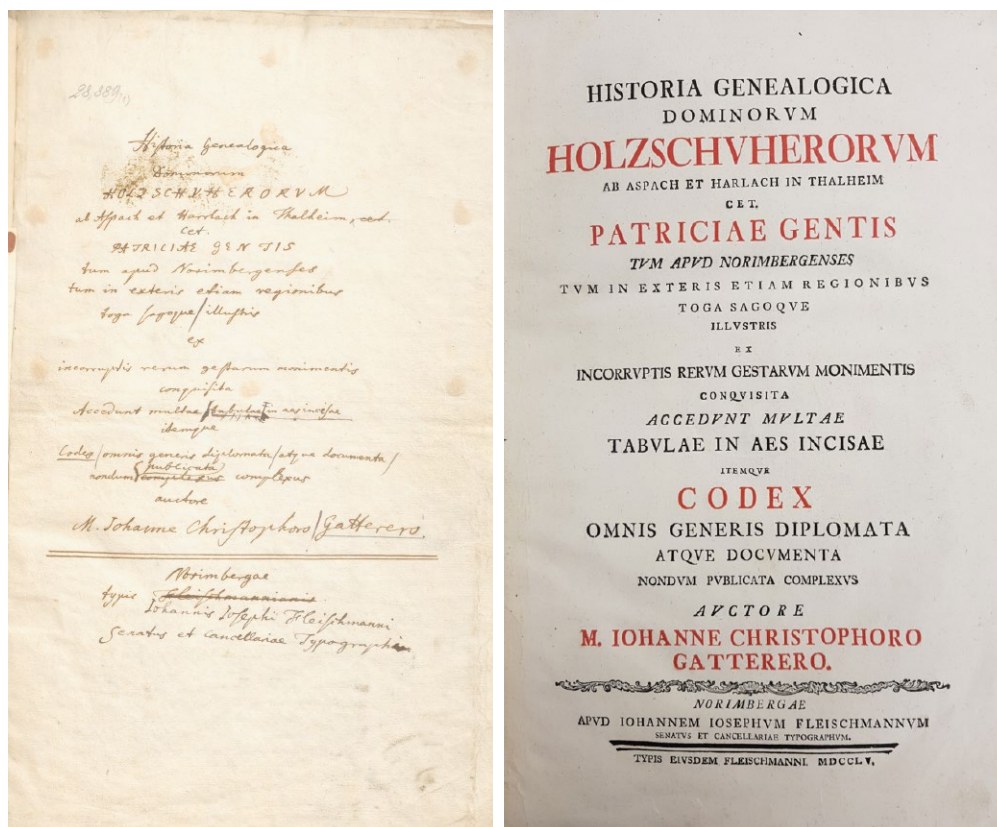 28,889
Historia Genealogica
Dominorum
HOLZSCHVHERORVM
ab Aspach et Harrlach in Thalheim, cet.
cet.
PATRICIAE GENTIS
tum apud Norimbergenses
tum in exteris etiam regionibus
toga sagoque/illustris
ex
incorruptis rerum gestarum monimentis
conquisita
Accedunt multae tabulae in aes incisae
itemque
Codex/omnis generis diplomata/atque documenta/
publicata
nondum complexus
auctore
M. Iohanne Christophoro/Gatterero.
Norimbergae
typis Fleischmannianis
Iohannis Iosephi Fleischmanni
Senatus et Cancellariae Typographi
HISTORIA GENEALOGICA
DOMINORVM
HOLZSCHVHERORVM
AB ASPACH ET HARLACH IN THALHEIM
CET.
PATRICIAE GENTIS
TVM APVD NORIMBERGENSES
TVM IN EXTERIS ETIAM REGIONIBVS
TOGA SAGOQVE
ILLVSTRIS
EX
INCORRVPTIS RERVM GESTARVM MONIMENTIS
CONQVISITA
ACCEDVNT MVLTAE
TABVLAE IN AES INCISAE
ITEMQVE
CODEX
OMNIS GENERIS DIPLOMATA
ATQVE DOCVMENTA
NONDVM PVBLICATA COMPLEXVS
AVCTORE
M. IOHANNE CHRISTOPHORO
GATTERERO.
NORIMBERGAE
APVD IOHANNEM IOSEPHVM FLEISCHMANNVM
SENATVS ET CANCELLARIAE TYPOGRAPHVM.
TYPIS EIVSDEM FLEISCHMANNI. MDCCLV.